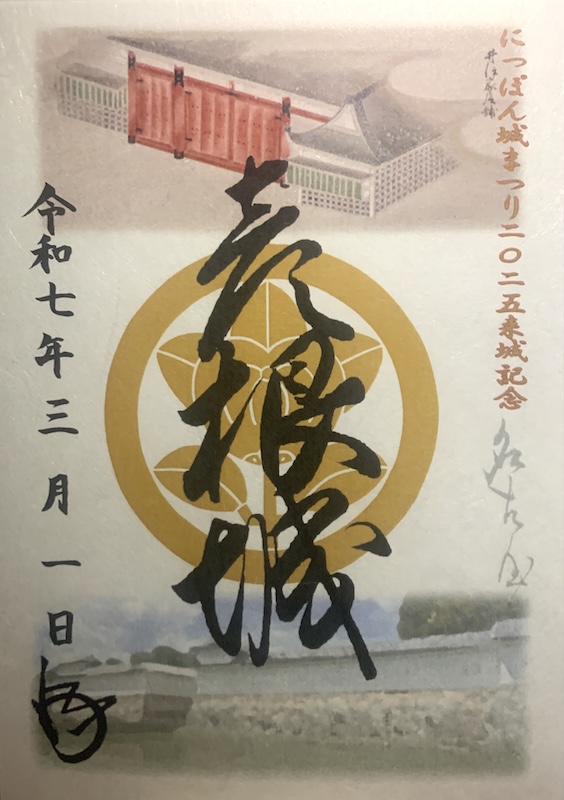 にっぽん城まつり二〇二五来城記念
名古屋
彦根城
令和七年三月一日